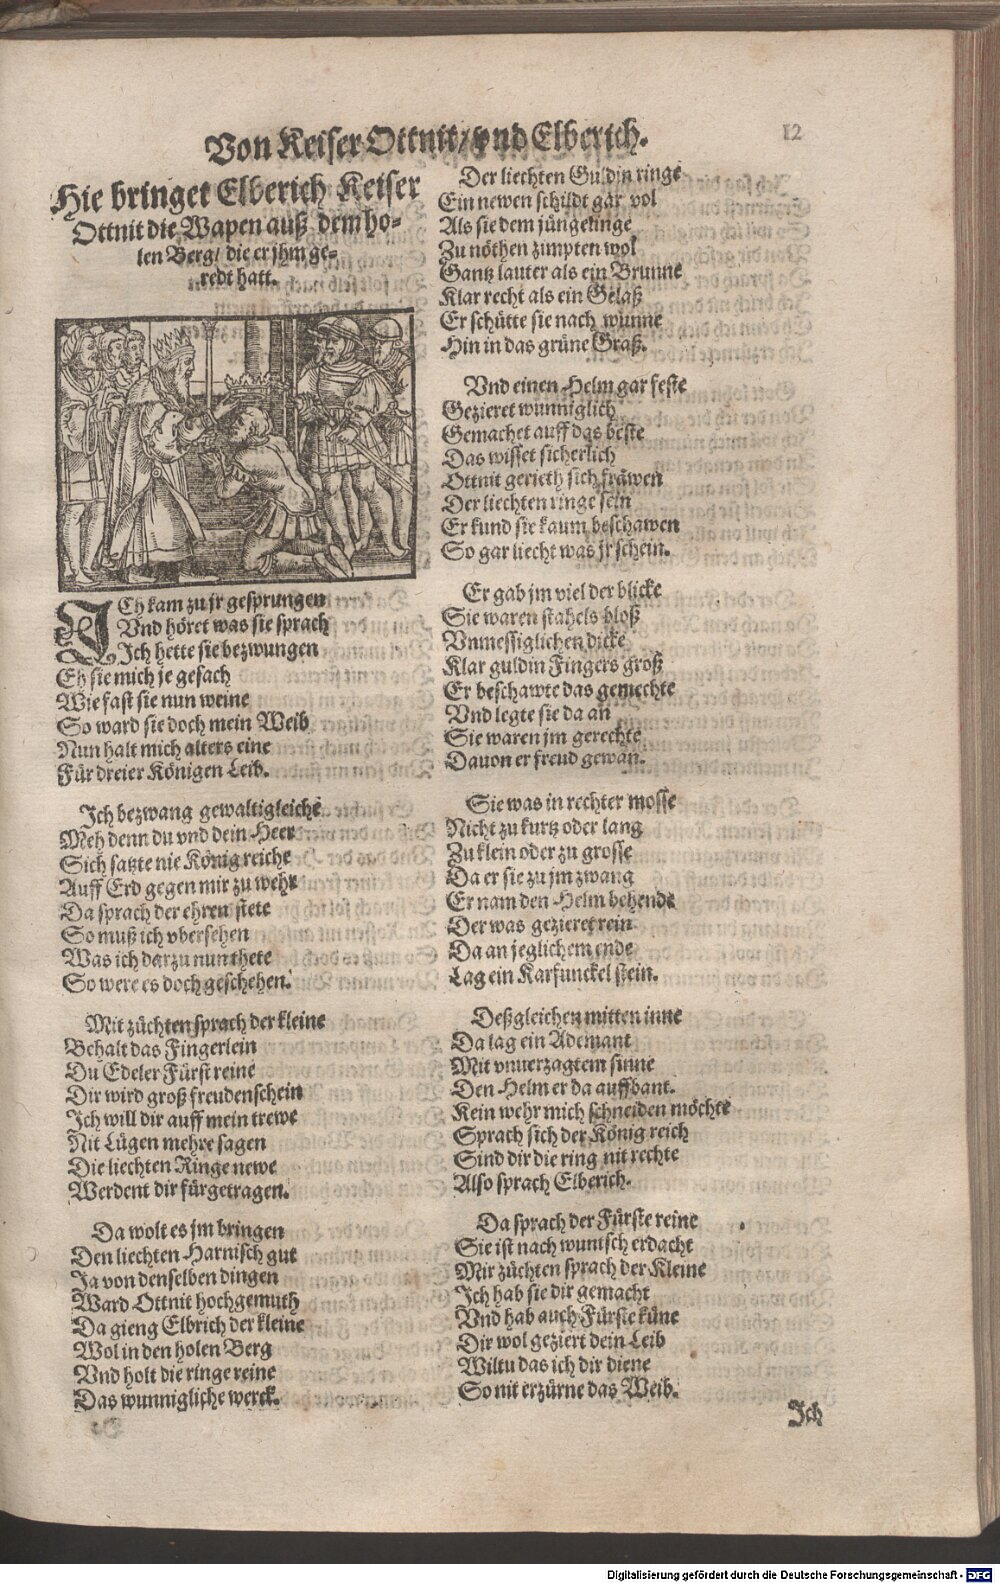 Von Keiser Ottnit/ vnd Elberich.
12
Hie bringet Elberich Keiser
Ottnit die Wapen auß dem ho-
len Berg/ die er jhm ge-
redt hatt.
ICh kam zu jr gesprungen
Vnd höret was sie sprach
Ich hette sie bezwungen
Eh sie mich je gesach
Wie fast sie nun weine
So ward sie doch mein Weib
Nun halt mich alters eine
Für dreier Königen Leib.
Ich bezwang gewaltigleiche
Meh denn du vnd dein Heer
Sich satzte nie König reiche
Auff Erd gegen mir zu wehr
Da sprach der ehren stete
So muß ich vbersehen
Was ich darzu nun thete
So were es doch geschehen.
Mit züchten sprach der kleine
Behalt das Fingerlein
Du Edeler Fürst reine
Dir wird groß freudenschein
Ich will dir auff mein trewe
Nit Lügen mehre sagen
Die liechten Ringe newe
Werdent dir fürgetragen.
Da wolt es jm bringen
Den liechten Harnisch gut
Ja von denselben dingen
Ward Ottnit hochgemuth
Da gieng Elbrich der kleine
Wol in den holen Berg
Vnd holt die ringe reine
Das wunnigliche werck.
Der liechten Guldin ringe
Ein newen schildt gar vol
Als sie dem jüngelinge
Zu nöthen zimpten wol
Gantz lauter als ein Brunne
Klar recht als ein Gelaß
Er schütte sie nach wunne
Hin in das grüne Graß.
Vnd einen Helm gar feste
Gezieret wunniglich
Gemachet auff das beste
Das wisset sicherlich
Ottnit gerieth sich fräwen
Der liechten ringe sein
Er kund sie kaum beschawen
So gar liecht was jr schein.
Er gab jm viel der blicke
Sie waren stahels bloß
Vnmessiglichen dicke
Klar guldin Fingers groß
Er beschawte das gemechte
Vnd legte sie da an
Sie waren jm gerechte
Dauon er freud gewan.
Sie was in rechter mosse
Nicht zu kurtz oder lang
Zu klein oder zu grosse
Da er sie zu jm zwang
Er nam den Helm behende
Der was gezieret rein
Da an jeglichem ende
Lag ein Karfunckel stein.
Deßgleichen mitten inne
Da lag ein Ademant
Mit vnuerzagtem sinne
Den Helm er da auffbant.
Kein wehr mich schneiden möchte
Sprach sich der König reich
Sind dir die ring nit rechte
Also sprach Elberich.
Da sprach der Fürste reine
Sie ist nach wuntsch erdacht
Mir züchten sprach der Kleine
Ich hab sie dir gemacht
Vnd hab auch Fürste küne
Dir wol geziert dein Leib
Wiltu das ich dir diene
So nit erzürne das Weib.
Ich
Digitalisierung gefördert durch die Deutsche Forschungsgemeinschaft - DFG